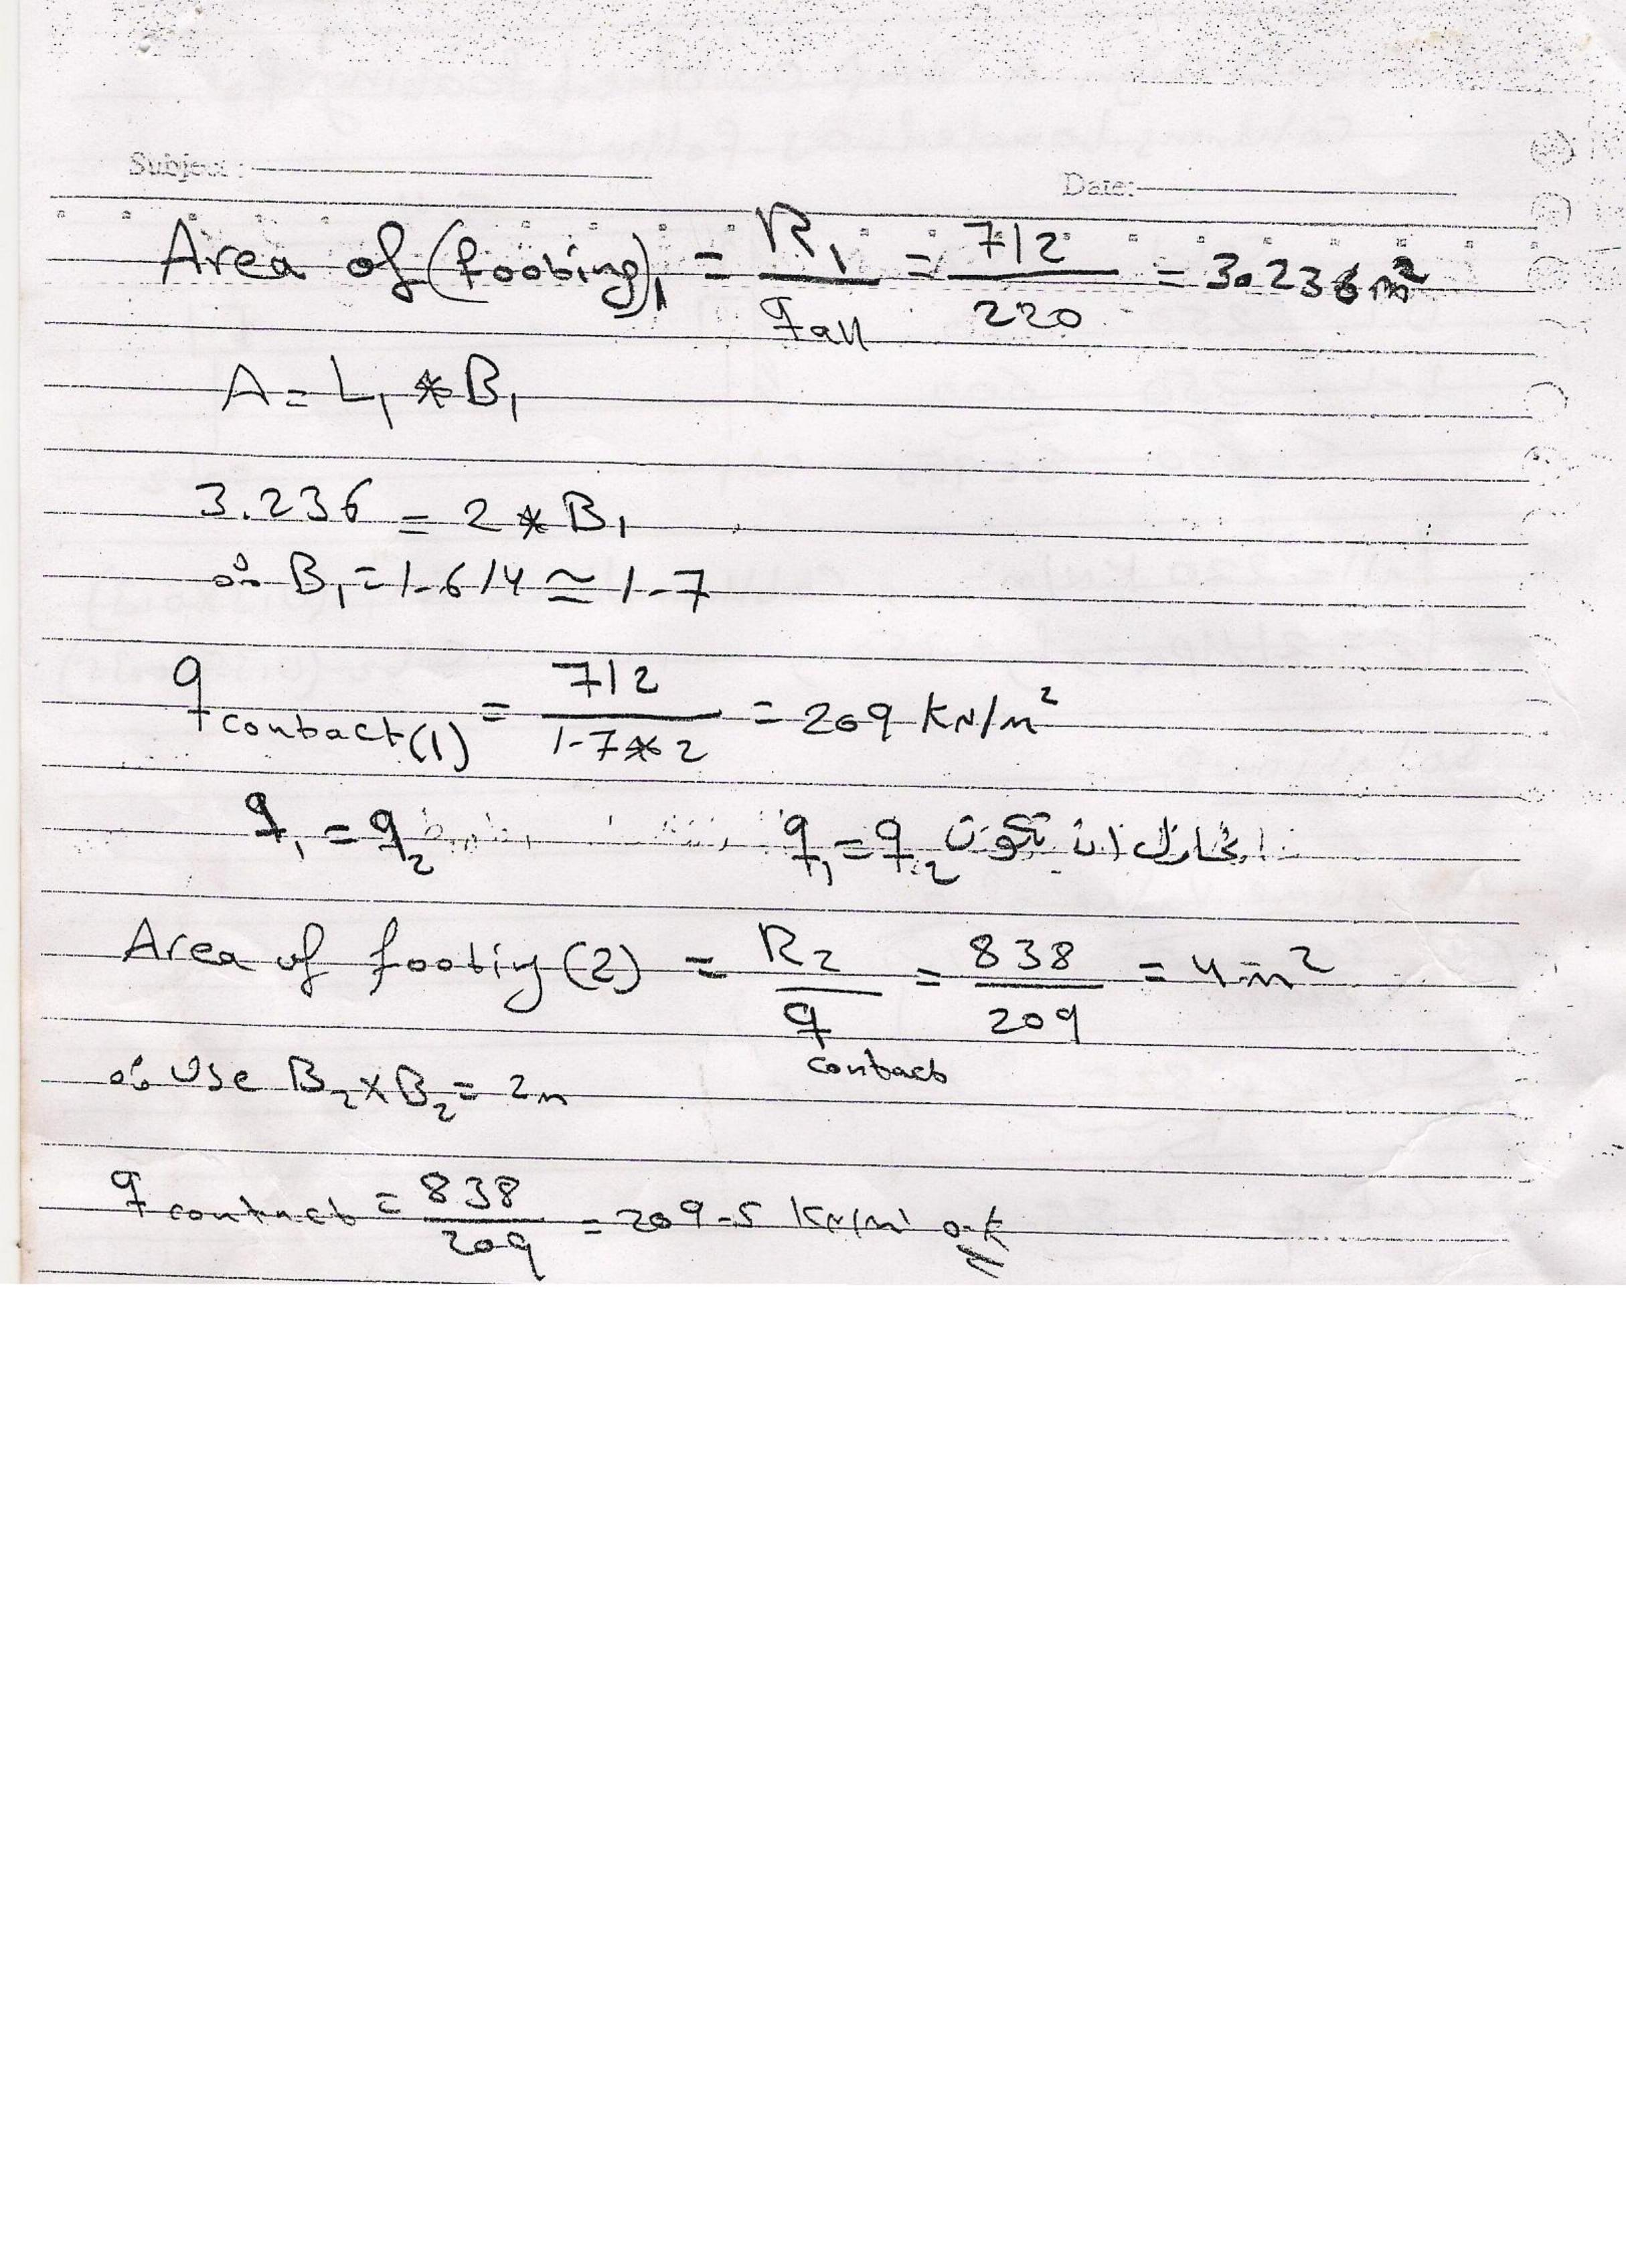 Subject :
Date:
Area of (footing)₁ = R₁ / q all = 712 / 220 = 3.236 m²
A = L₁ * B₁
3.236 = 2 * B₁
∴ B₁ = 1.614 ≃ 1.7
q contact (1) = 712 / 1.7*2 = 209 KN/m²
q₁ = q₂ احاول ان تكون q₁ = q₂
Area of footing (2) = R₂ / q contact = 838 / 209 = 4 m²
∴ Use B₂ x B₂ = 2m
q contact = 838 / 209 = 209.5 KN/m² o.k